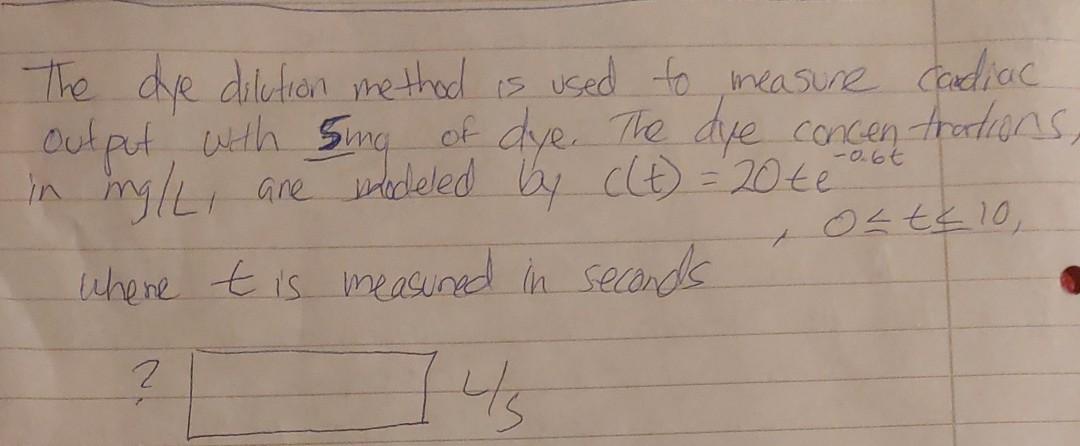 The dye dilution method is used to measure cardiac
output with 5mg of dye. The dye concentrations,
in mg/L, are modeled by c(t) = 20te^{-0.6t}
, 0 ≤ t ≤ 10,
where t is measured in seconds
? L/s